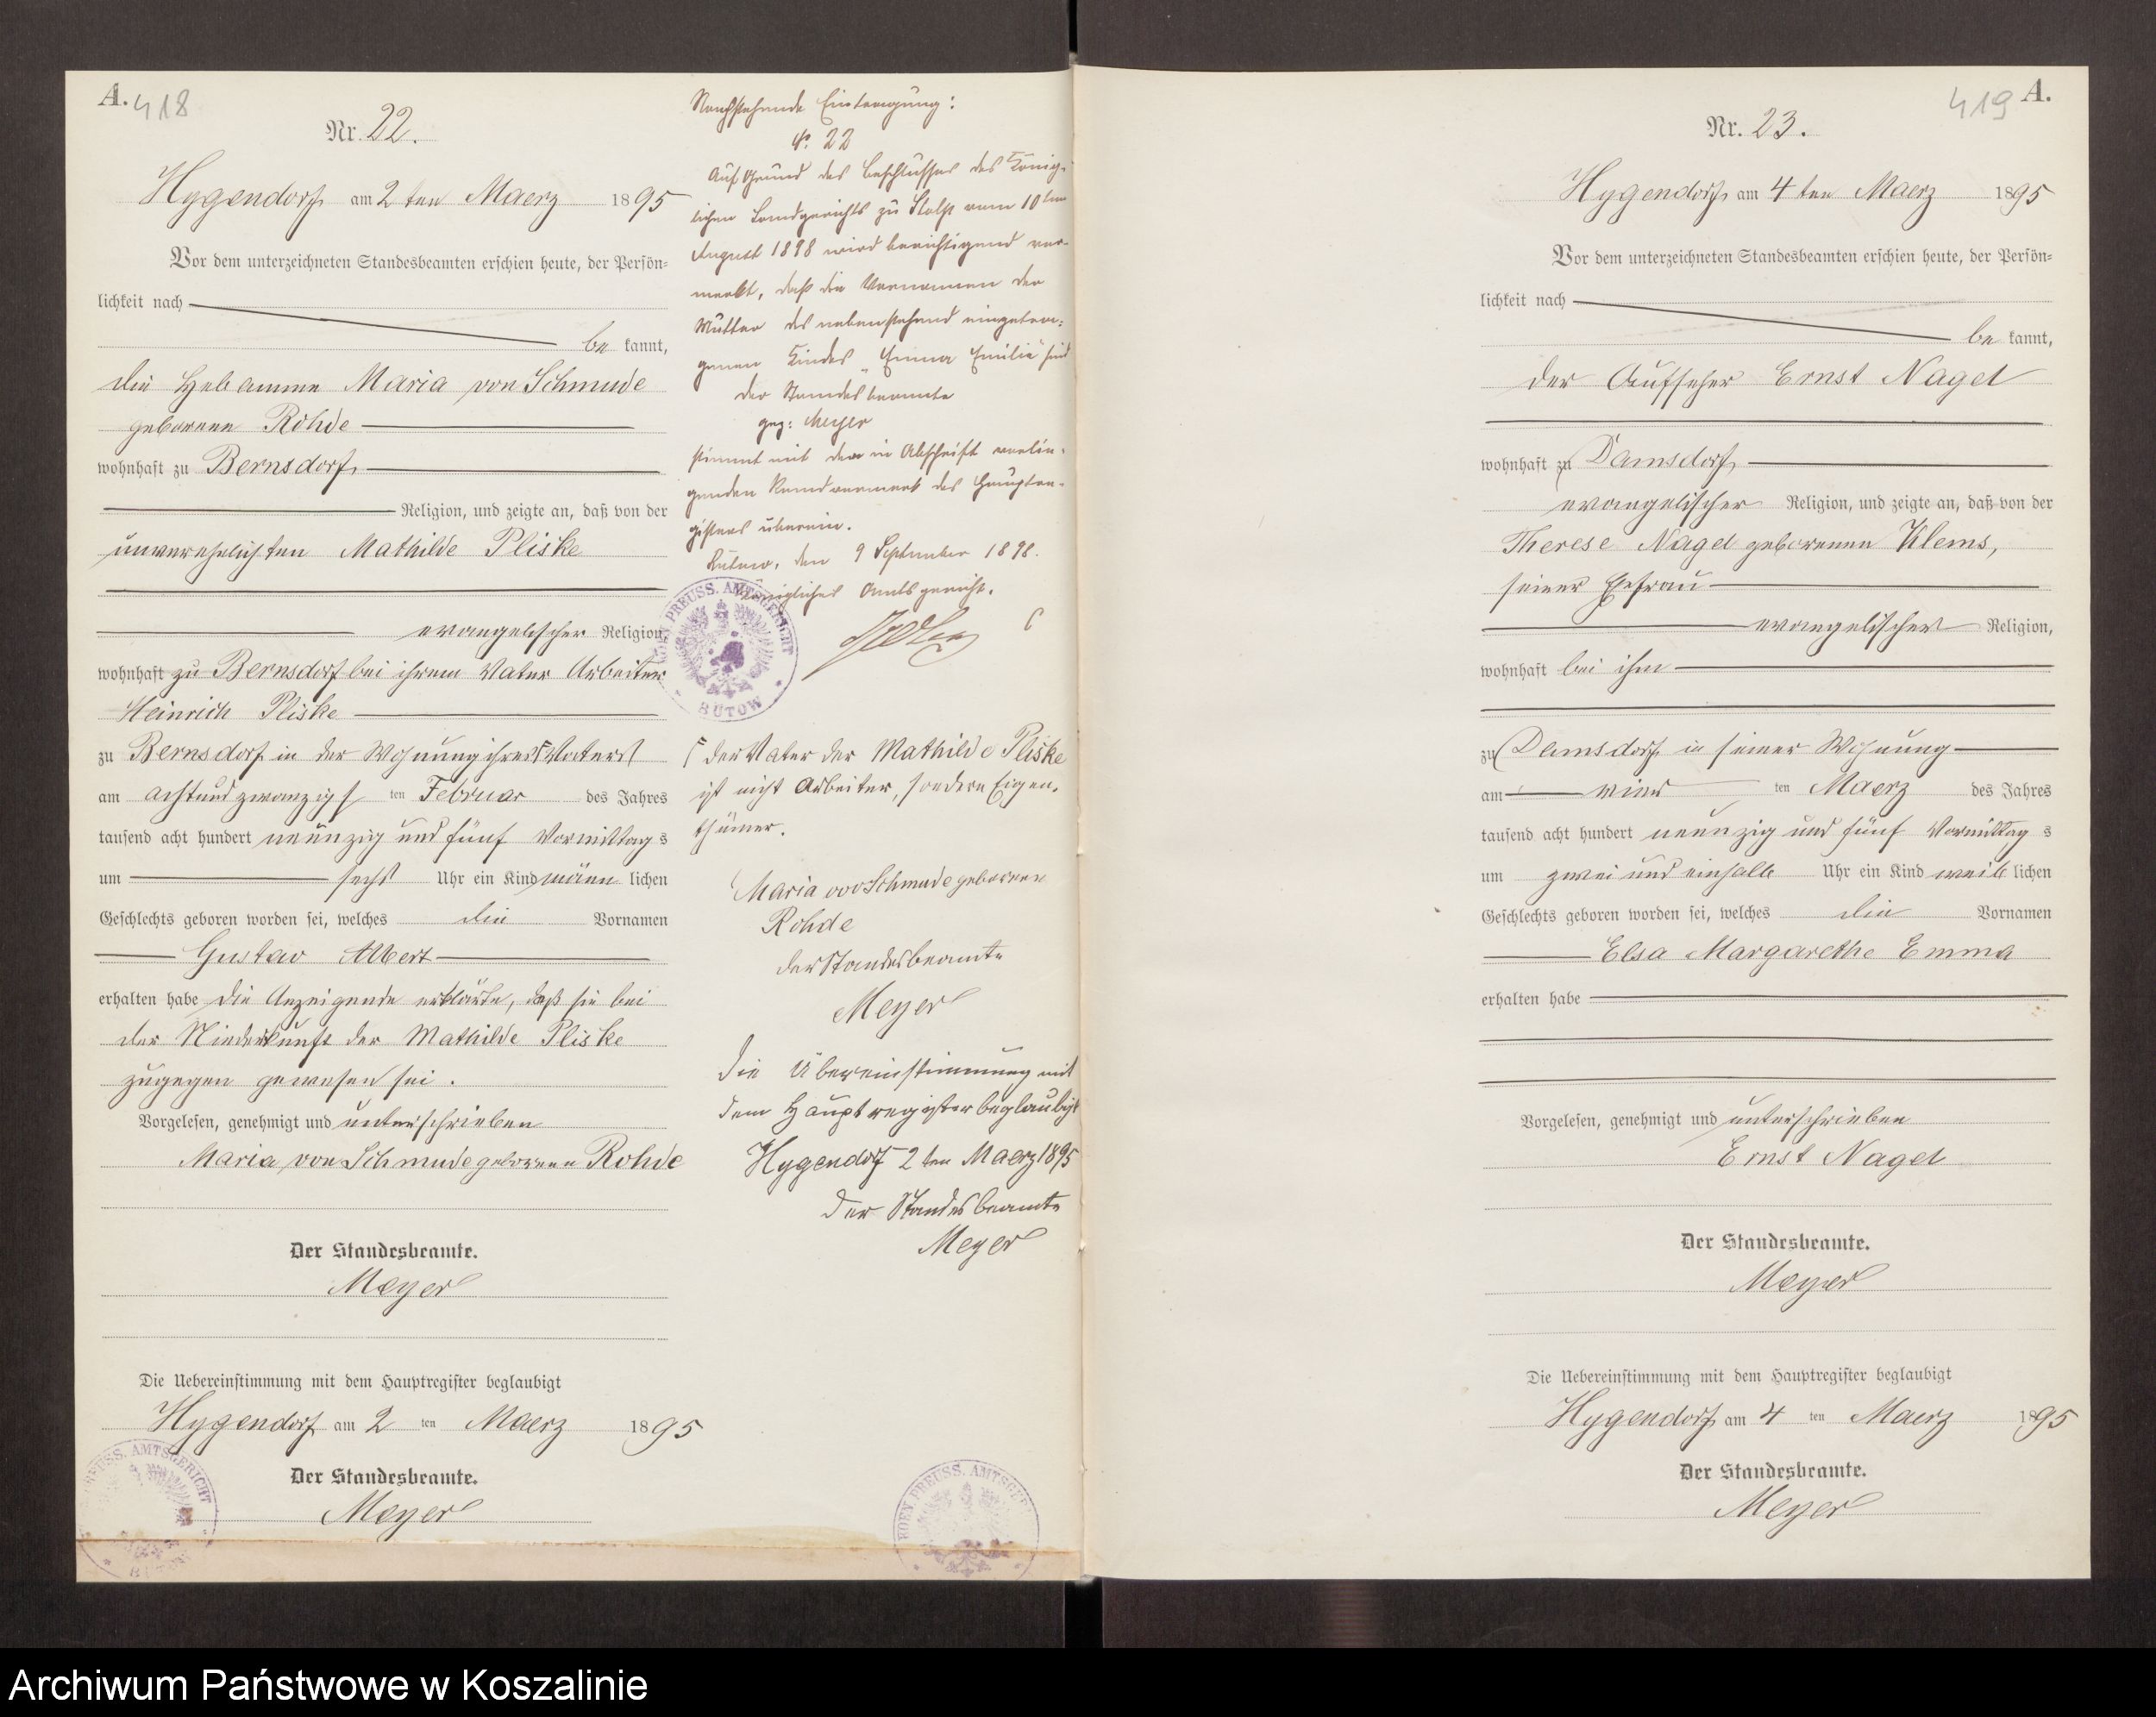 A. 418
Nr. 22.
Hygendorf am 2 ten Maerz 1895
Vor dem unterzeichneten Standesbeamten erschien heute, der Persön-
lichkeit nach
be kannt,
die Hebamme Maria von Schmude
geborene Rohde
wohnhaft zu Bernsdorf,
Religion, und zeigte an, daß von der
unverehelichten Mathilde Pliske
evangelischer Religion,
wohnhaft zu Bernsdorf bei ihrem Vater Arbeiter
Heinrich Pliske
zu Bernsdorf in der Wohnung ihres Vaters
am achtundzwanzigs ten Februar des Jahres
tausend acht hundert neunzig und fünf Vormittags
um sechs Uhr ein Kind männ lichen
Geschlechts geboren worden sei, welches die Vornamen
Gustav Albert
erhalten habe die Anzeigende erklärte, daß sie bei
der Niederkunft der Mathilde Pliske
zugegen gewesen sei.
Vorgelesen, genehmigt und unterschrieben
Maria von Schmude geborene Rohde
Der Standesbeamte.
Meyer
Die Uebereinstimmung mit dem Hauptregister beglaubigt
Hygendorf am 2 ten Maerz 1895
Der Standesbeamte.
Meyer
Nachstehende Eintragung:
№ 22
Auf Grund des Beschlusses des König-
lichen Landgerichts zu Stolp vom 10ten
August 1898 wird berichtigend ver-
merkt, daß die Vornamen der
Mutter des nebenstehend eingetra-
genen Kindes "Emma Emilie" sind
der Standesbeamte
gez: Meyer
stimmt mit dem in Abschrift vorlie-
genden Randvermerk des Hauptre-
gisters überein.
Bütow, den 9 September 1898.
Königliches Amtsgericht.
KOEN PREUSS. AMTSGERICHT
BÜTOW
der Vater der Mathilde Pliske
ist nicht Arbeiter, sondern Eigen-
thümer.
Maria von Schmude geborene
Rohde
der Standesbeamte
Meyer
Die Übereinstimmung mit
dem Hauptregister beglaubigt
Hygendorf 2 ten Maerz 1895
der Standesbeamte
Meyer
PREUSS. AMTSGERICHT
KOEN PREUSS. AMTSGE
419 A.
Nr. 23.
Hygendorf am 4 ten Maerz 1895
Vor dem unterzeichneten Standesbeamten erschien heute, der Persön-
lichkeit nach
be kannt,
der Aufseher Ernst Nagel
wohnhaft zu Damsdorf,
evangelischer Religion, und zeigte an, daß von der
Therese Nagel geborenen Klems,
seiner Ehefrau
evangelischer Religion,
wohnhaft bei ihm
zu Damsdorf in seiner Wohnung
am vier ten Maerz des Jahres
tausend acht hundert neunzig und fünf Vormittag s
um zwei und einhalb Uhr ein Kind weib lichen
Geschlechts geboren worden sei, welches die Vornamen
Elsa Margarethe Emma
erhalten habe
Vorgelesen, genehmigt und unterschrieben
Ernst Nagel
Der Standesbeamte.
Meyer
Die Uebereinstimmung mit dem Hauptregister beglaubigt
Hygendorf am 4 ten Maerz 1895
Der Standesbeamte.
Meyer
Archiwum Państwowe w Koszalinie